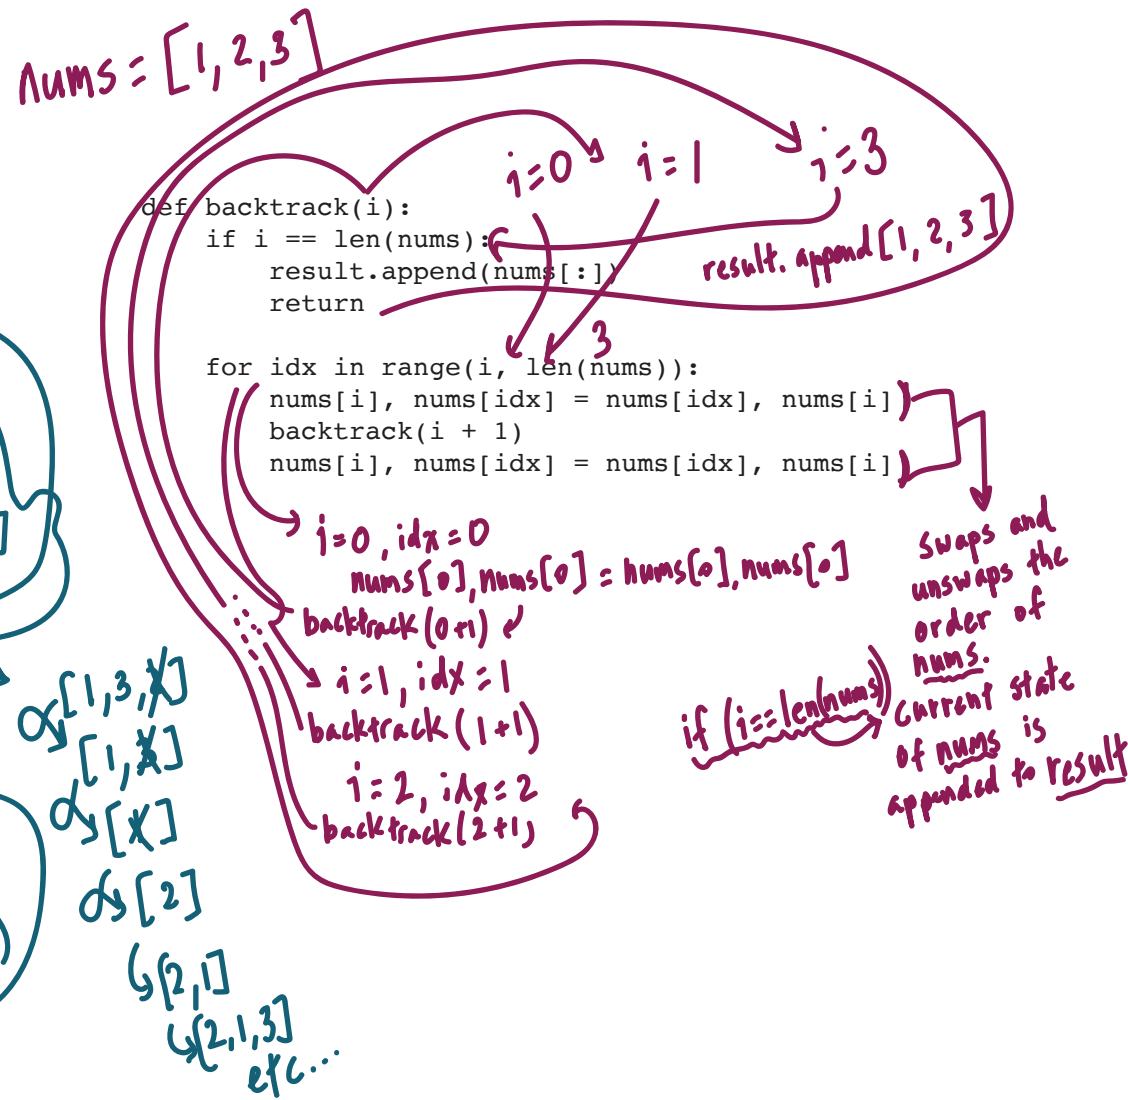 nums = [1, 2, 3]
i=0 i=1 i=3
def backtrack(i):
if i == len(nums):
result.append(nums[:])
return
result.append[1, 2, 3]
3
for idx in range(i, len(nums)):
nums[i], nums[idx] = nums[idx], nums[i]
backtrack(i + 1)
nums[i], nums[idx] = nums[idx], nums[i]
i=0, idx=0
nums[0], nums[0] = nums[0], nums[0]
backtrack(0+1)
i=1, idx=1
backtrack(1+1)
i=2, idx=2
backtrack(2+1)
swaps and
unswaps the
order of
nums.
if (i==len(nums))
current state
of nums is
appended to result
]
[1,3,2]
[1,3]
[1]
[2]
[2,1]
[2,1,3]
etc...